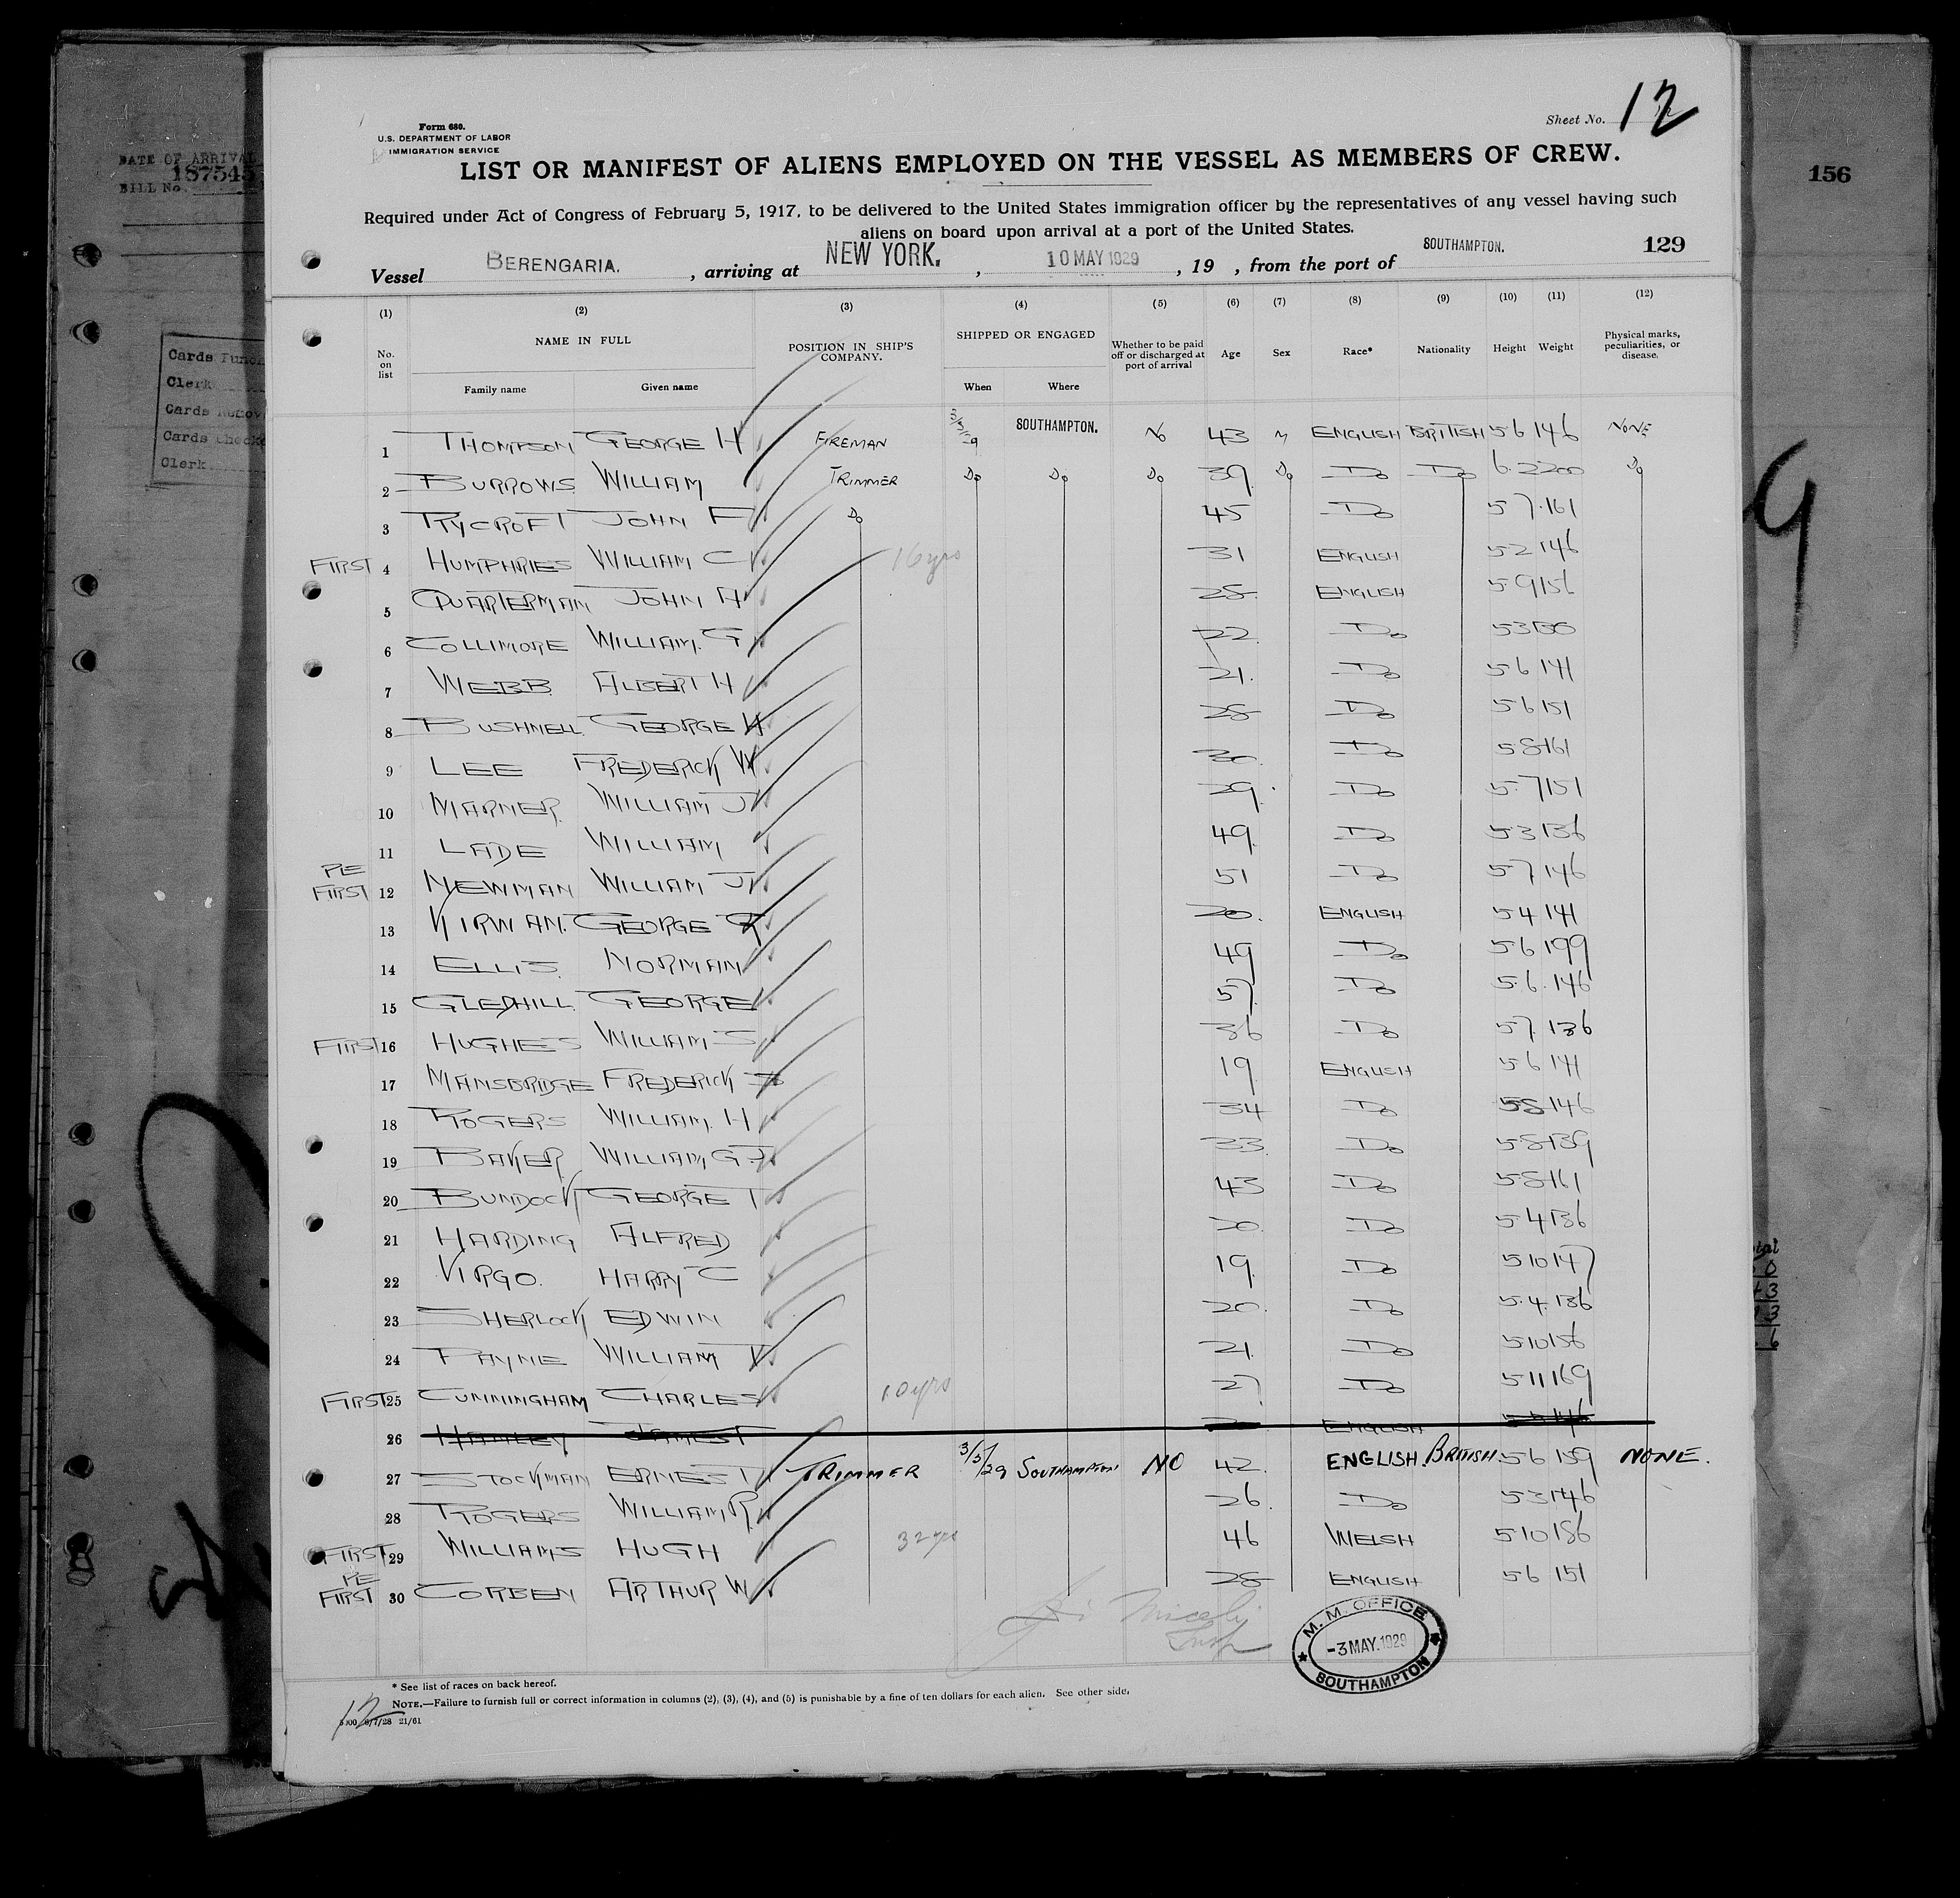 Form 680.
U.S. DEPARTMENT OF LABOR
IMMIGRATION SERVICE
Sheet No. 12
LIST OR MANIFEST OF ALIENS EMPLOYED ON THE VESSEL AS MEMBERS OF CREW.
Required under Act of Congress of February 5, 1917, to be delivered to the United States immigration officer by the representatives of any vessel having such
aliens on board upon arrival at a port of the United States.
129
Vessel BERENGARIA. , arriving at NEW YORK. , 10 MAY 1929 , 19 , from the port of SOUTHAMPTON.
(1) (2) (3) (4) (5) (6) (7) (8) (9) (10) (11) (12)
No. on list NAME IN FULL Family name Given name POSITION IN SHIP'S COMPANY. SHIPPED OR ENGAGED When Where Whether to be paid off or discharged at port of arrival Age Sex Race* Nationality Height Weight Physical marks, peculiarities, or disease.
1 THOMPSON GEORGE H FIREMAN 3/5/29 SOUTHAMPTON. No 43 M ENGLISH BRITISH 5 6 146 NONE
2 BURROWS WILLIAM TRIMMER Do Do Do 39 Do Do Do 6.2 200 Do
3 RYCROFT JOHN F Do 45 Do 5 7 161
FIRST 4 HUMPHRIES WILLIAM C 16 yrs 31 ENGLISH 5 2 146
5 QUARTERMAN JOHN H 28 ENGLISH 5 9 156
6 COLLIMORE WILLIAM. G 22 Do 5 3 130
7 WEBB ALBERT H 21. Do 5 6 141
8 BUSHNELL GEORGE W 28 Do 5 6 151
9 LEE FREDERICK W 30 Do 5 8 161
10 MARNER WILLIAM J 29. Do 5 7 151
11 LADE WILLIAM 49 Do 5 3 136
RE FIRST 12 NEWMAN WILLIAM J 51 Do 5 7 146
13 KIRWAN. GEORGE R 20. ENGLISH 5 4 141
14 ELLIS. NORMAN 49 Do 5 6 199
15 GLEDHILL GEORGE 57. Do 5.6. 146
FIRST 16 HUGHES WILLIAM S 36 Do 5 7. 136
17 MANSBRIDGE FREDERICK 19 ENGLISH 5 6 141
18 ROGERS WILLIAM. H 34 Do 5 8 146
19 BAKER WILLIAM G J 33 Do 5 8 139
20 BUNDOCK GEORGE T 43 Do 5 8 161
21 HARDING ALFRED 20. Do 5 4 136
22 VIRGO. HARRY C 19. Do 5 10 147
23 SHERLOCK EDWIN 20. Do 5.4. 136
24 PAYNE WILLIAM V 21. Do 5 10 156
FIRST 25 CUNNINGHAM CHARLES 10 yrs 27 Do 5 11 169
26 HANLEY JAMES F ENGLISH 146
27 STOCKMAN ERNEST TRIMMER 3/5/29 SOUTHAMPTON NO 42. ENGLISH. BRITISH. 5 6 159 NONE.
28 ROGERS WILLIAM R 26. Do 5 3 146
FIRST 29 WILLIAMS HUGH 32 yrs 46 WELSH 5 10 186
RE FIRST 30 CORBEN ARTHUR W 28 ENGLISH 5 6 151
M. M. OFFICE
-3 MAY. 1929
SOUTHAMPTON
* See list of races on back hereof.
NOTE.—Failure to furnish full or correct information in columns (2), (3), (4), and (5) is punishable by a fine of ten dollars for each alien. See other side.
12
6/7/28 21/61
DATE OF ARRIVAL
BILL No. 187545
Clerk
Cards
Cards
Clerk
156
9